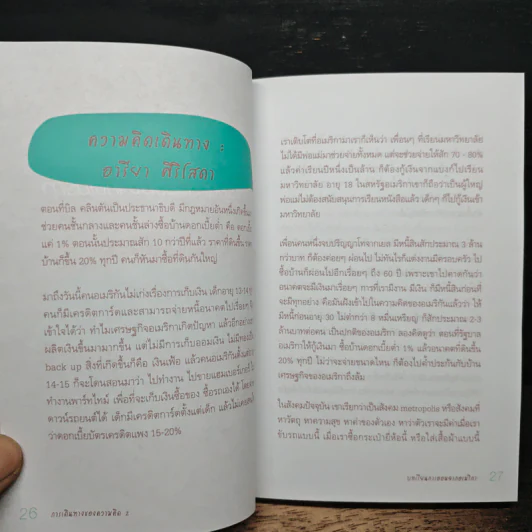 ความคิดเดินทาง :
อารียา สิริโสดา
ตอนที่บิล คลินตันเป็นประธานาธิบดี มีกฎหมายอันหนึ่งเกิดขึ้น
ช่วยคนชั้นกลางและคนชั้นล่างซื้อบ้านดอกเบี้ยต่ำ คือ ดอกเบี้ย
แค่ 1% ตอนนั้นประมาณสัก 10 กว่าปีที่แล้ว ราคาที่ดินขึ้น
บ้านก็ขึ้น 20% ทุกปี คนก็หันมาซื้อที่ดินกันใหญ่
มาถึงวันนี้คนอเมริกันไม่เก่งเรื่องการเก็บเงิน เด็กอายุ 13-14
คนก็มีเครดิตการ์ดและสามารถจ่ายหนี้อนาคตไปเรื่อยๆ
เข้าใจได้ว่า ทำไมเศรษฐกิจอเมริกาเกิดปัญหา แล้วอีกอย่าง
ผลิตเงินขึ้นมามากขึ้น แต่ไม่มีการเก็บออมเงิน ไม่มีทอง
back up สิ่งที่เกิดขึ้นก็คือ เงินเฟ้อ แล้วคนอเมริกันตั้งแต่
14-15 ก็จะโดนสอนมาว่า ไปทำงาน ไปขายแฮมเบอร์เกอร์
ทำงานพาร์ทไทม์ เพื่อที่จะเก็บเงินซื้อของ ซื้อรถเองได้ โดย
ดาวน์รถยนต์ได้ เด็กมีเครดิตการ์ดตั้งแต่เด็ก แล้วไม่เคย
ว่าดอกเบี้ยบัตรเครดิตแพง 15-20%
26 การเดินทางของความคิด 2
เราเติบโตที่อเมริกามาเราก็เห็นว่า เพื่อนๆ ที่เรียนมหาวิทยาลัย
ไม่ได้มีพ่อแม่มาช่วยจ่ายทั้งหมด แต่จะช่วยจ่ายให้สัก 70 - 80%
แล้วค่าเรียนปีหนึ่งเป็นล้าน ก็ต้องกู้เงินจากแบงก์ไปเรียน
มหาวิทยาลัย อายุ 18 ในสหรัฐอเมริกาเขาก็ถือว่าเป็นผู้ใหญ่
พ่อแม่ไม่ต้องสนับสนุนการเรียนหนังสือแล้ว เด็กๆ ก็ไปกู้เงินเข้า
มหาวิทยาลัย
เพื่อนคนหนึ่งจบปริญญาโทจากเยล มีหนี้สินสักประมาณ 3 ล้าน
กว่าบาท ก็ต้องค่อยๆ ผ่อนไป ไม่ทันไรก็แต่งงานมีครอบครัว ไป
ซื้อบ้านก็ผ่อนไปอีกเรื่อยๆ ถึง 60 ปี เพราะเขาไปคาดกันว่า
อนาคตจะมีเงินมาเรื่อยๆ การที่เรามีงาน มีเงิน ก็มีหนี้สินก่อนที่
จะมีทุกอย่าง คือมันฝังเข้าไปในความคิดของอเมริกันแล้วว่า ให้
มีหนี้ก่อนอายุ 30 ไม่ต่ำกว่า 8 หมื่นเหรียญ! ก็สักประมาณ 2-3
ล้านบาทต่อคน เป็นปกติของอเมริกา ลองคิดดูว่า ตอนที่รัฐบาล
อเมริกาให้กู้เงินมา ซื้อบ้านดอกเบี้ยต่ำ 1% แล้วอนาคตที่ดินขึ้น
20% ทุกปี ไม่ว่าจะจ่ายขนาดไหน ก็ต้องไปค้ำประกันกับบ้าน
เศรษฐกิจของอเมริกาถึงล้ม
ในสังคมปัจจุบัน เขาเรียกว่าเป็นสังคม metropolis หรือสังคมที่
หาวัตถุ หาความสุข หาค่าของตัวเอง หาว่าตัวเราจะมีค่าเมื่อเรา
ขับรถแบบนี้ เมื่อเราซื้อกระเป๋ายี่ห้อนี้ หรือใส่เสื้อผ้าแบบนี้
27